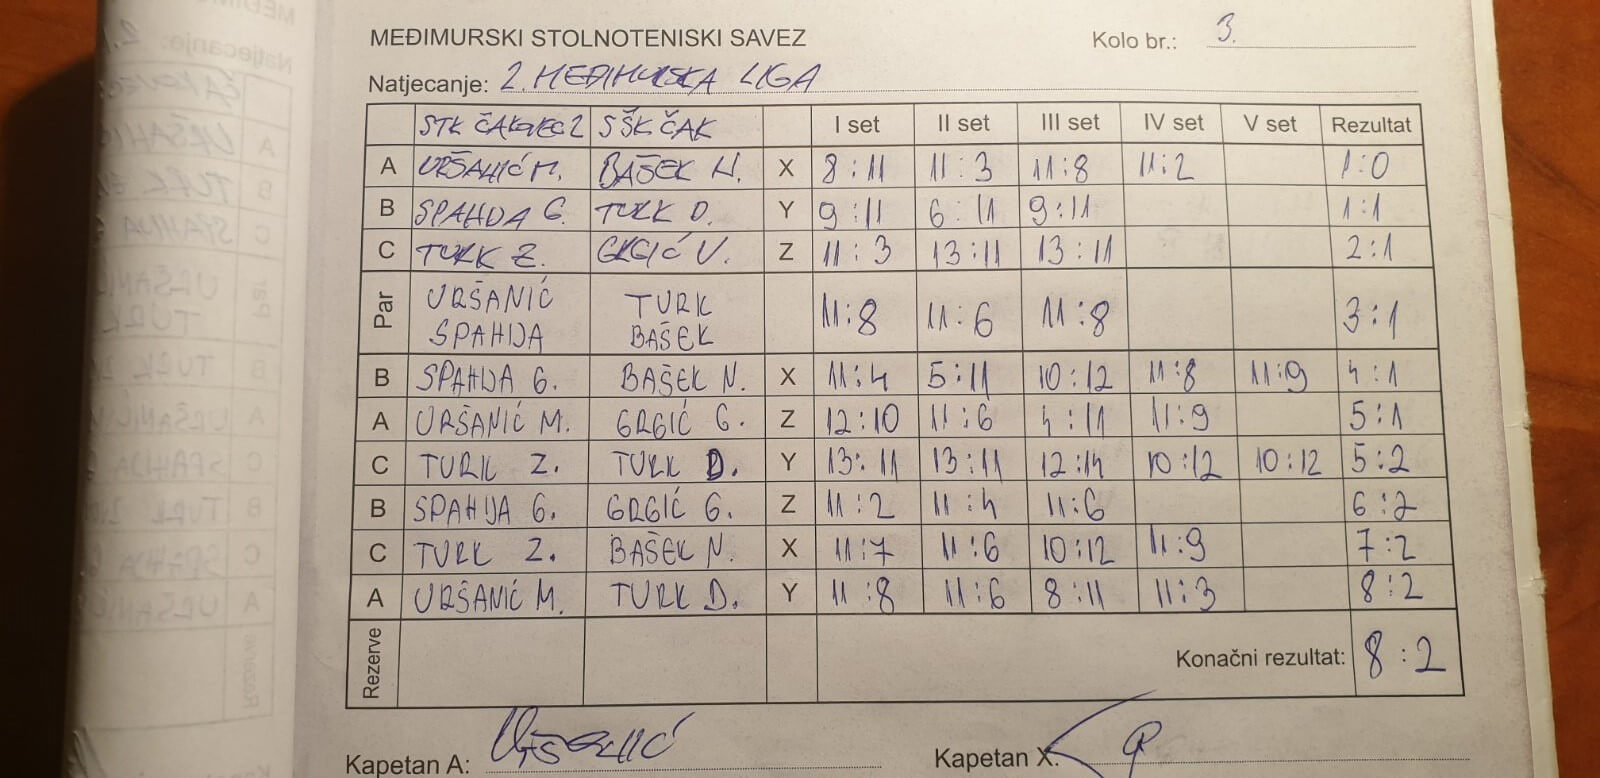 MEĐIMURSKI STOLNOTENISKI SAVEZ Kolo br.: 3.
Natjecanje: 2. MEĐIMURSKA LIGA
STK ČAKOVEC 2 SŠK ČAK I set II set III set IV set V set Rezultat
A URŠANIĆ M. BAŠEK N. X 8:11 11:3 11:8 11:2 1:0
B SPAHIJA G. TURK D. Y 9:11 6:11 9:11 1:1
C TURK Z. GRGIĆ V. Z 11:3 13:11 13:11 2:1
Par URŠANIĆ TURK 11:8 11:6 11:8 3:1
SPAHIJA BAŠEK
B SPAHIJA G. BAŠEK N. X 11:4 5:11 10:12 11:8 11:9 4:1
A URŠANIĆ M. GRGIĆ G. Z 12:10 11:6 4:11 11:9 5:1
C TURK Z. TURK D. Y 13:11 13:11 12:14 10:12 10:12 5:2
B SPAHIJA G. GRGIĆ G. Z 11:2 11:4 11:6 6:2
C TURK Z. BAŠEK N. X 11:7 11:6 10:12 11:9 7:2
A URŠANIĆ M. TURK D. Y 11:8 11:6 8:11 11:3 8:2
Rezerve Konačni rezultat: 8:2
Kapetan A: Uršanić Kapetan X: